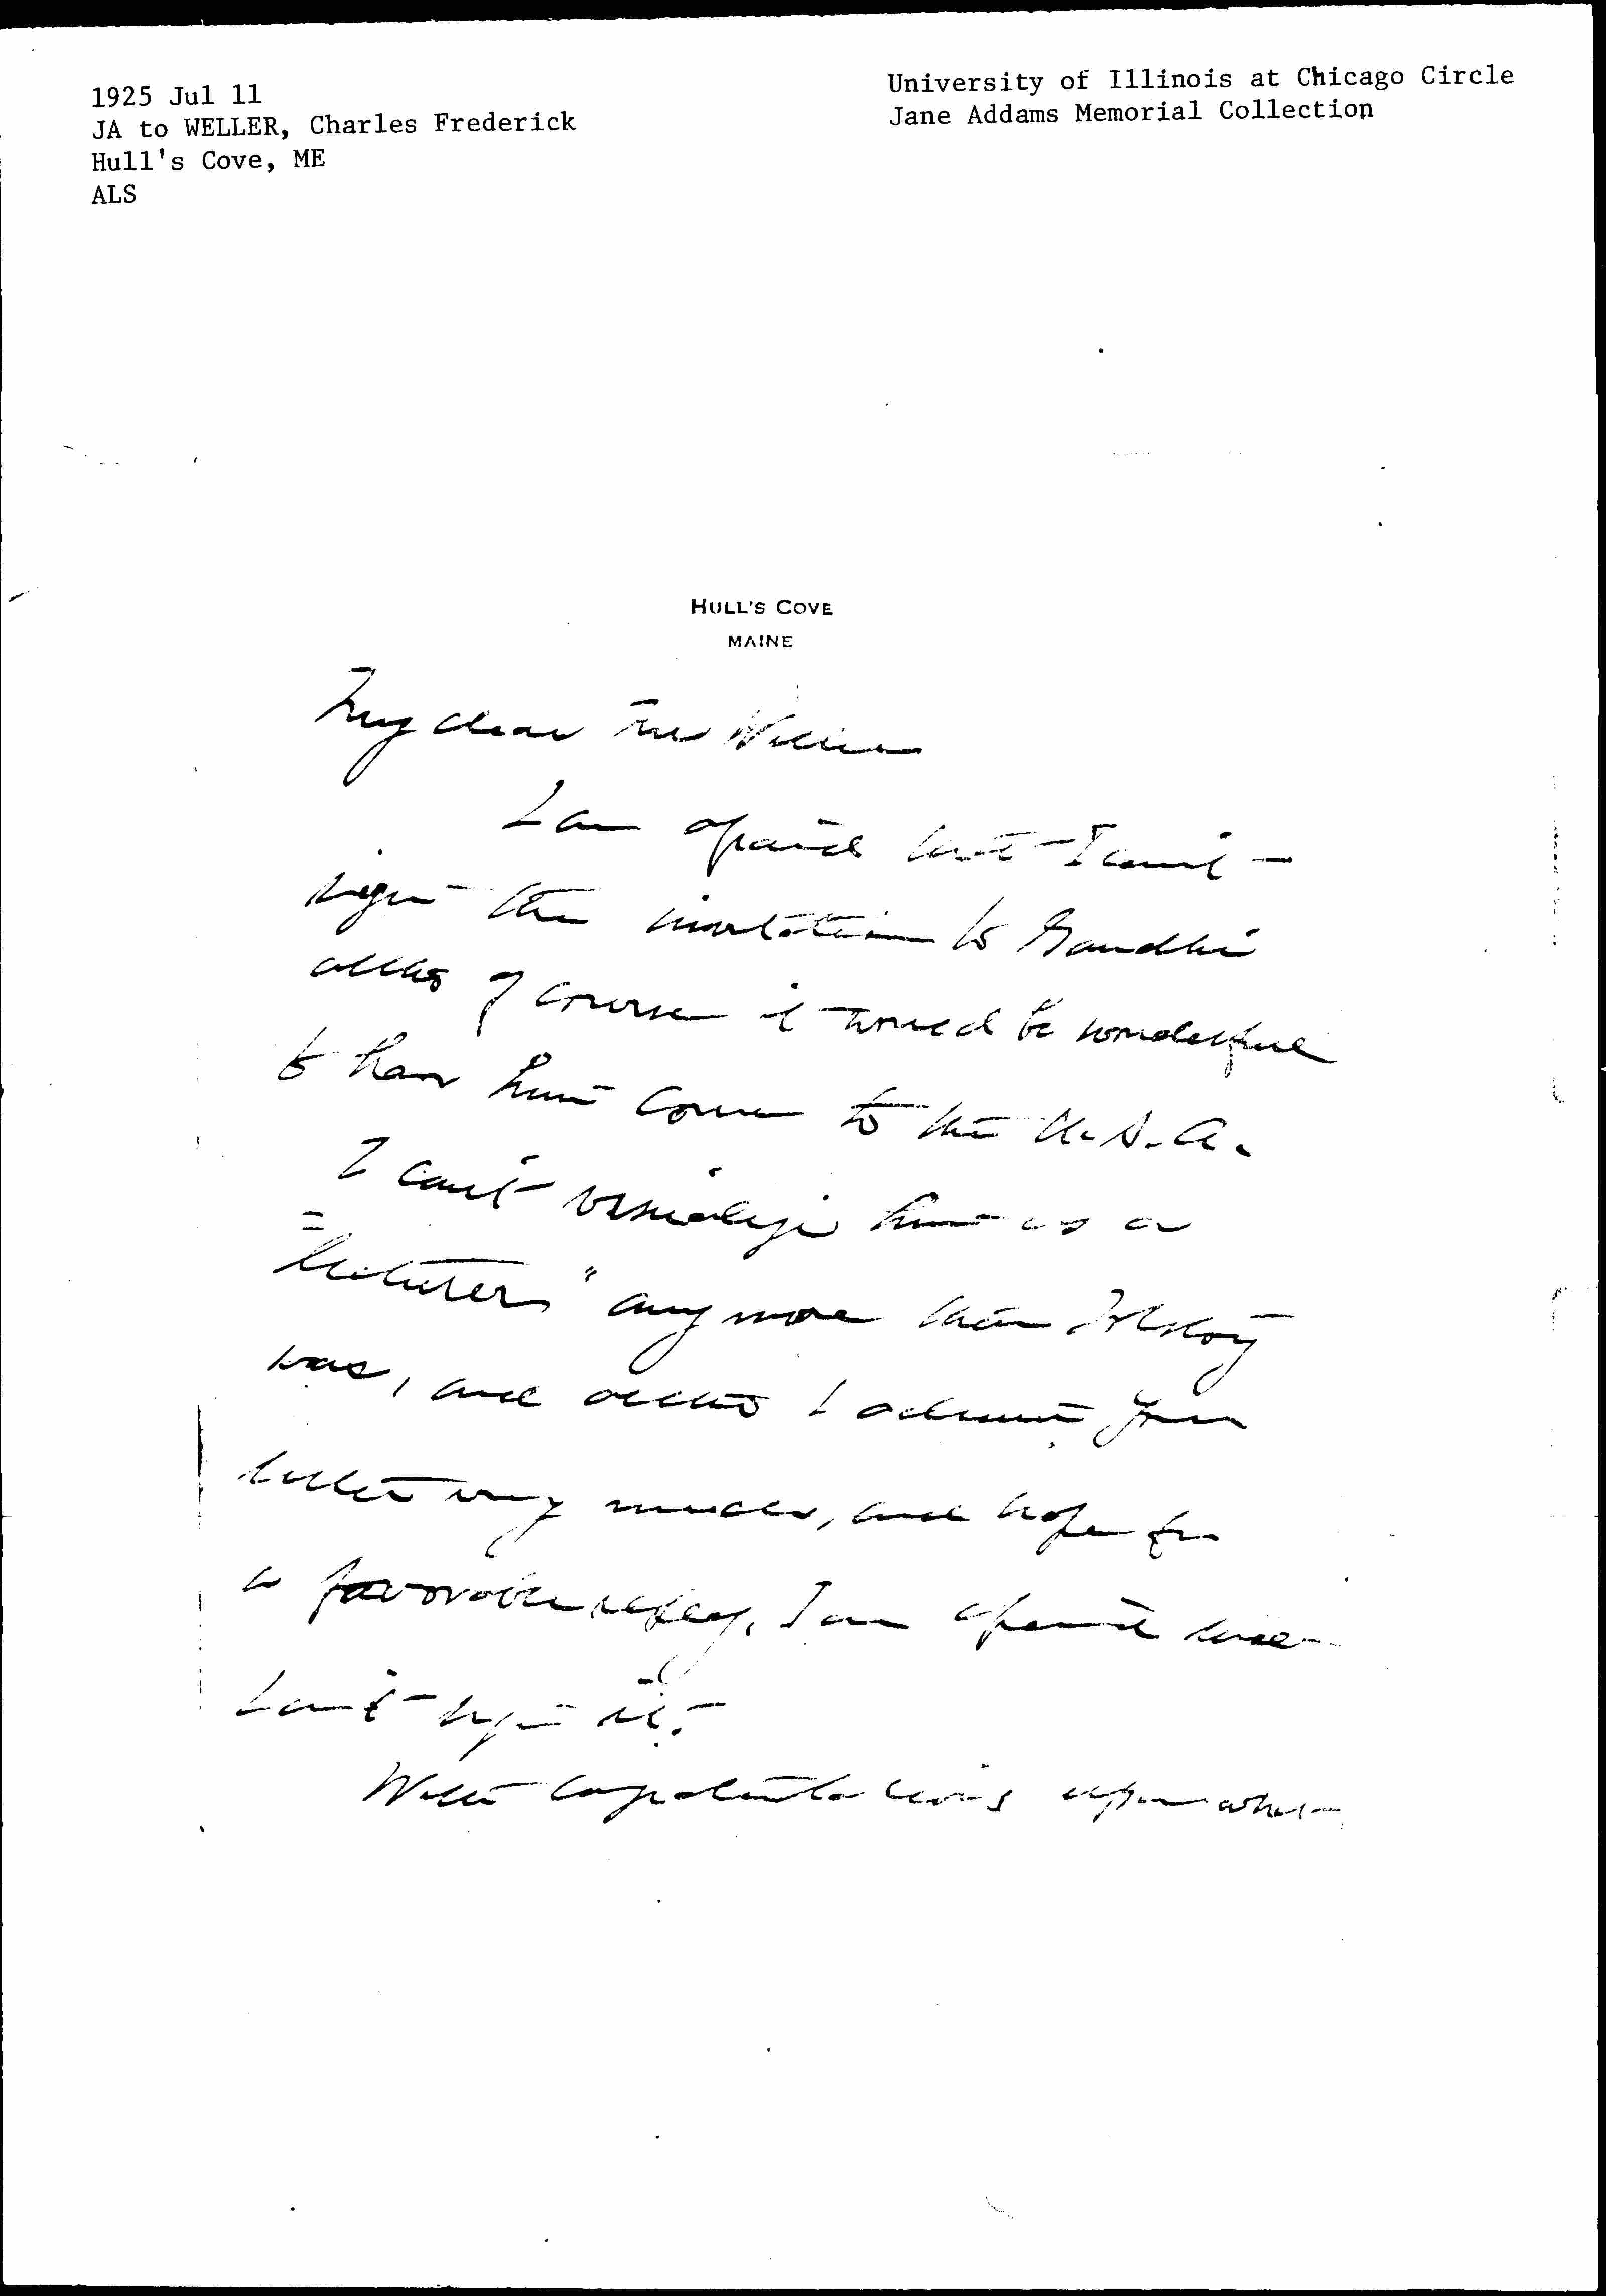 1925 Jul 11
JA to WELLER, Charles Frederick
Hull's Cove, ME
ALS
University of Illinois at Chicago Circle
Jane Addams Memorial Collection
HULL'S COVE
MAINE
My dear Mr Weller
I am afraid that I can't
sign the invitation to Gandhi
altho of course it would be wonderful
to have him come to the U.S.A.
I can't visualize him as a
"lecturer" any more than Tolstoy
was, and altho I admire your
letter very much, and hope for
a favorable reply, I am afraid
I can't sign it.
With congratulations upon what